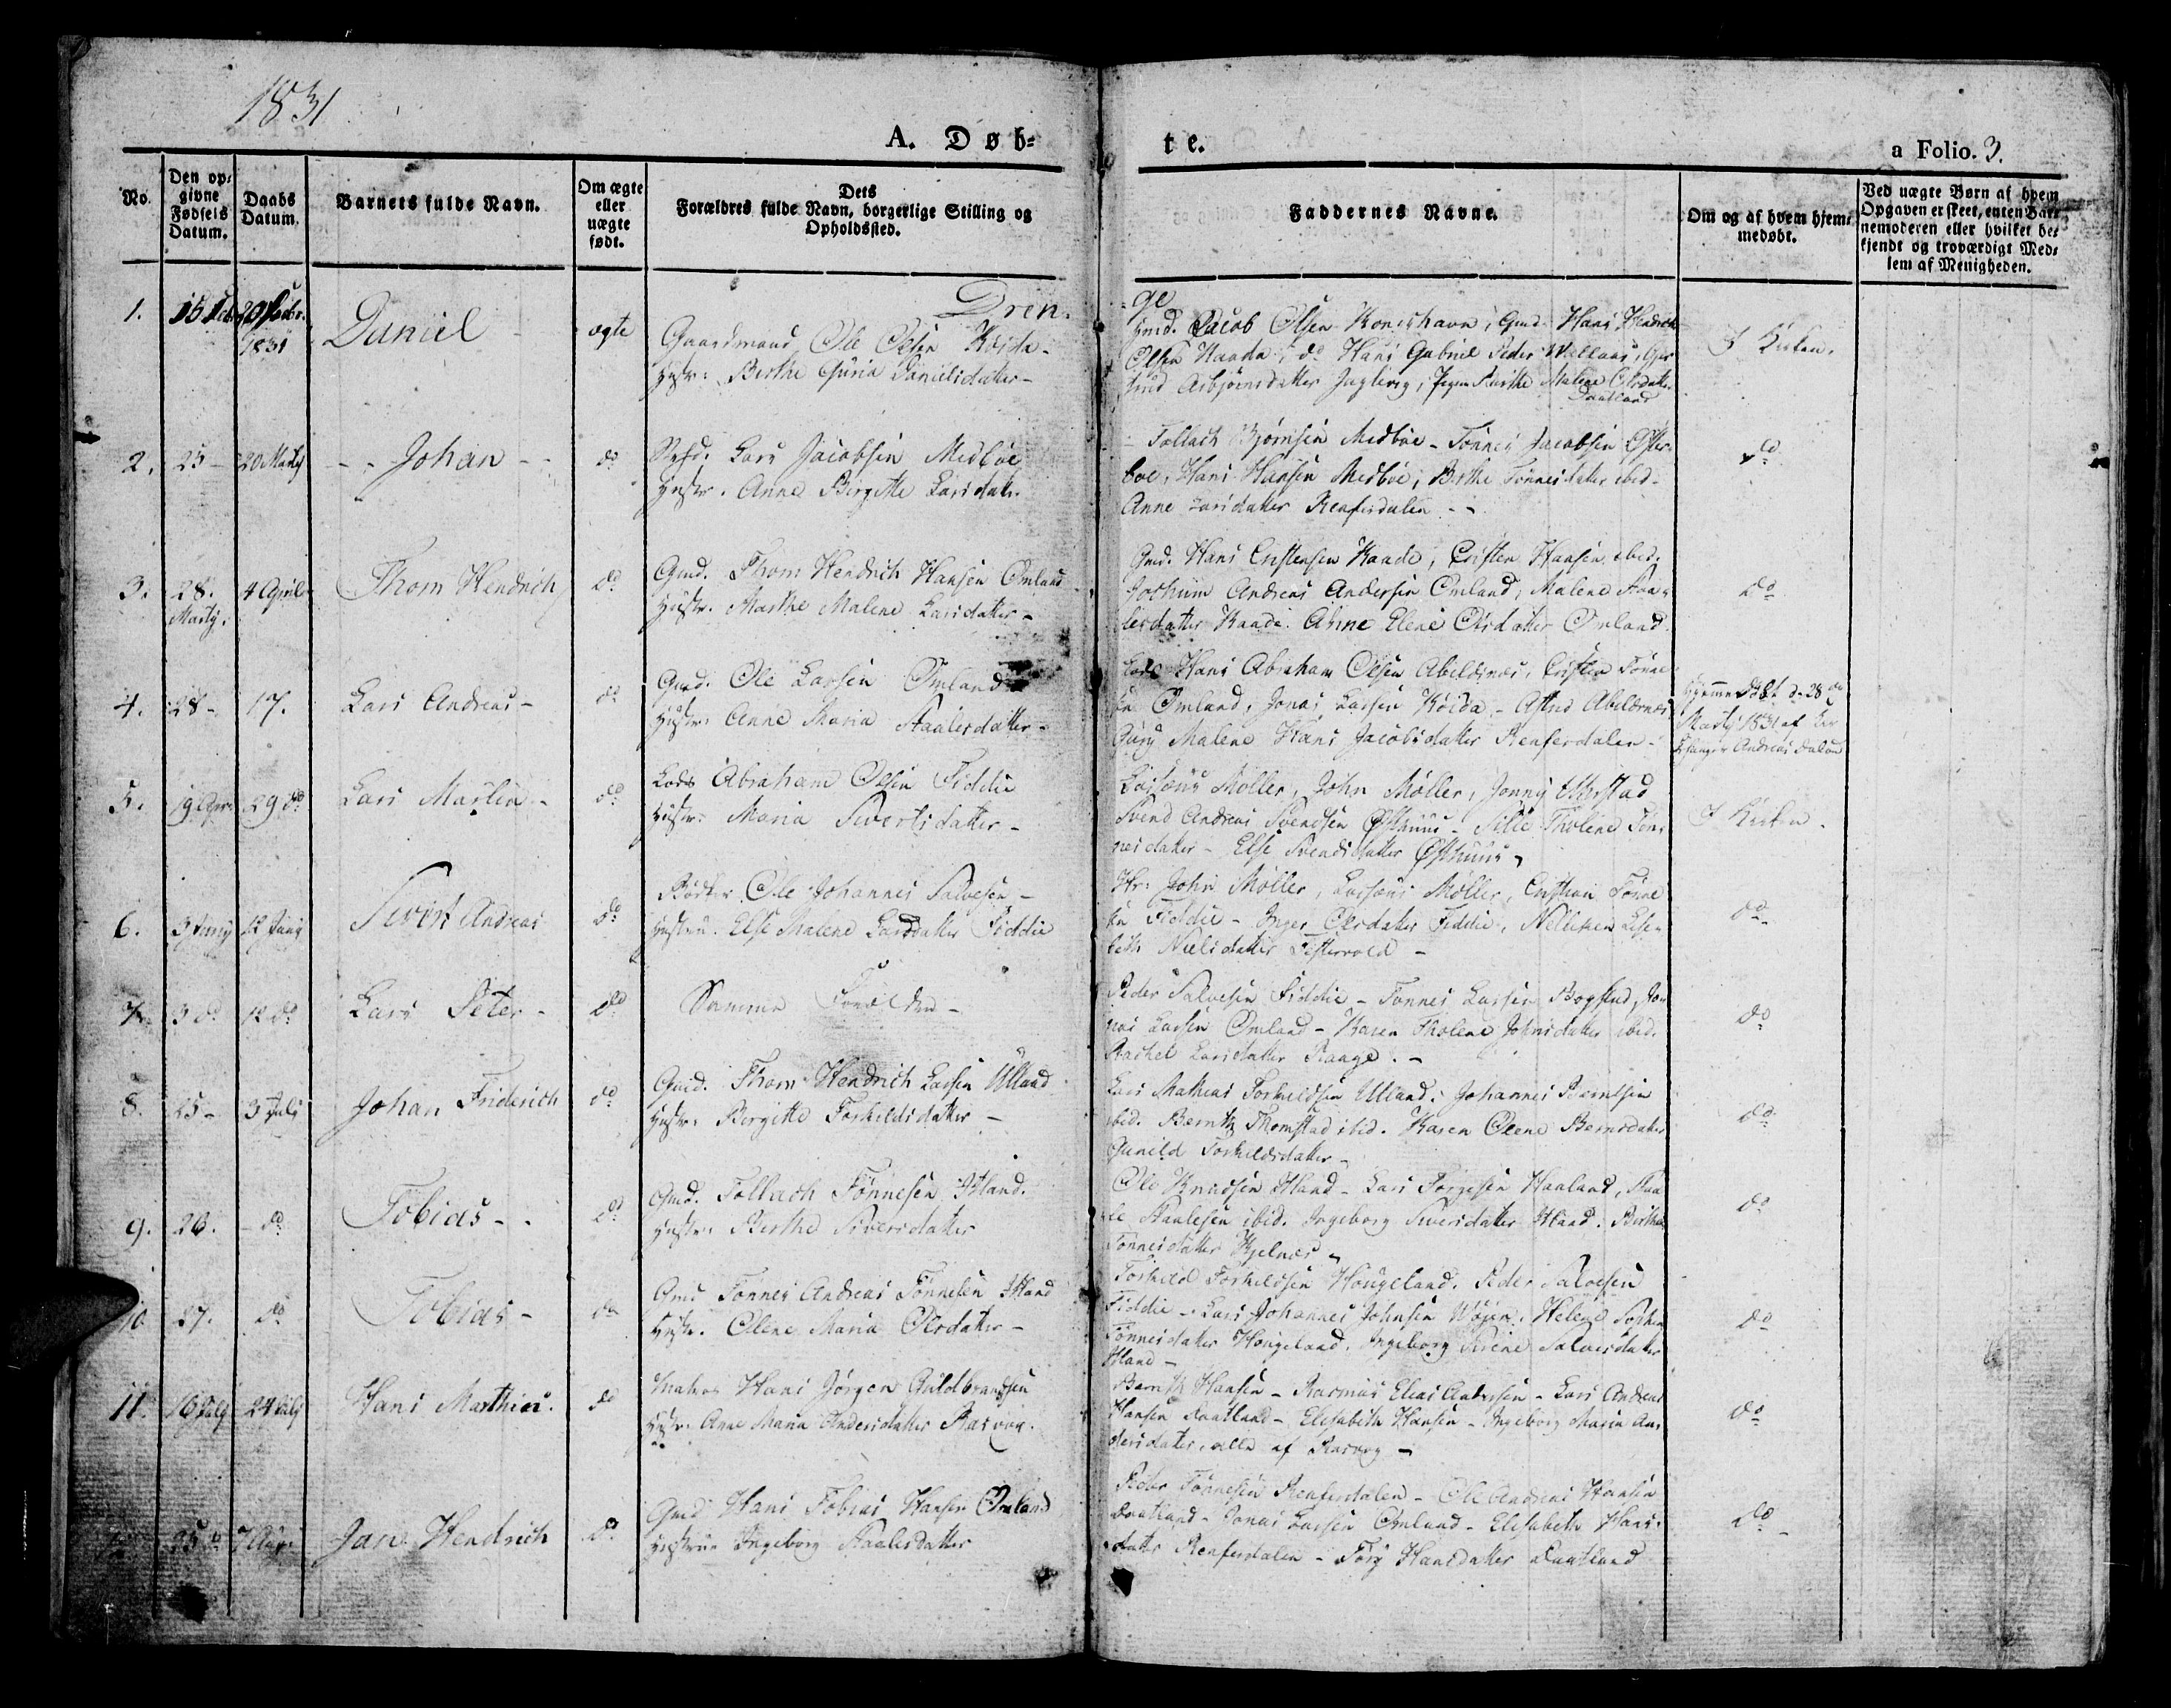 1831
A. Døb-
te.
a Folio. 3.
No.
Den op-
givne
Fødsels
Datum.
Daabs
Datum.
Barnets fulde Navn.
Om ægte
eller
uægte
født.
Dets
Forældres fulde Navn, borgerlige Stilling og
Opholdssted.
Faddernes Navne.
Om og af hvem hjem-
medøbt.
Ved uægte Børn af hvem
Opgaven er skeet, enten Bar-
nemoderen eller hvilket be-
kjendt og troværdigt Med-
lem af Menigheden.
Dren-
ge
1. 15 Feb 20 Febr.
1831
Daniel - ægte
Gaardmand Ole Olsen Høida-
Hustr: Berthe Guria Danielsdatter-
Gmd. Jacob Olsen Kongshavn, Gmd. Hans Hendrich
Olsen Kaada, do Hans Gabriel Peder
Asbjørnsdatter Malene Olsdatter
Daatland
I Kirken.
2. 25 - 20 Martij -- Johan -- do
Lars Jacobsen Medbøe
Hustr. Anne Birgitte Larsdatr.
Tollach Bjørnsen Medbøe - Tønnes Jacobsen Øster-
boe, Hans Hansen Medbøe, Berthe Tønnesdatter ibid-
Anne Larsdatter Renfersdalen --
do
3. 28.
Martij. 4 April Thom Hendrich do
Gmd. Thom Hendrich Hansen Omland
Hustr. Marthe Malene Larsdatter -
Gmd. Hans Cristensen Kaade, Cristen Hansen ibid.
Jochum Andreas Andersen Omland, Malene Staa-
lesdatter Kaade. Anne Elene Olsdatter Omland
do
4. 28 - 17. Lars Andreas - do
Gmd. Ole Larsen Omland
Hustr: Anne Maria Staalesdatter -
Lods Hans Abraham Olsen Abelsnes, Cristen Tønne-
sen Omland, Jonas Larsen Høida - Astrid Abelsnes
Gury Malene Hans Jacobsdatter Renfersdalen -
Hjemmedøbt d. 28de
Martij 1831 af
Andreas
5. 19 Apr. 29 do Lars Martin - do
Lods Abraham Olsen Fiddie
Hustr: Maria Sivertsdatter -
Møller, John Møller, Jonny
Svend Andreas Svendsen Østhuus - Sille Tholene Tøn-
nesdatter - Else Svendsdatter Østhuus
I Kirken.
6. 3 Juny 12 Juny Sivert Andreas do
Bødker Ole Johannes Salvesen -
Hustru. Else Malene Larsdatter Fiddie
Hr. John Møller, Møller, Cristian Tønne-
sen Fiddie - Inger Olsdatter Fiddie,
beth Nielsdatter
do
7. 3 do 12 do Lars Peter - do
Samme Forældre -
Peder Salvesen Fiddie - Tønnes Larsen Bogstad, Jo-
nas Larsen Omland - Karen Tholene Johnsdatter ibid.
Rachel Larsdatter Raage. -
do
8. 25 - 3 July Johan Friderich do
Gmd. Thom Hendrich Larsen Ulland
Hustr: Birgitte Torkildsdatter -
Lars Mathias Torkildsen Ulland. Johannes Berntsen
ibid. Berntz Thomstad ibid. Karen Olene Berntsdatter
Gunild Torkildsdatter -
do
9. 26. - do Tobias - . do
Gmd. Tollach Tønnesen Stland.
Hustr. Berthe Siversdatter
Ole Knudsen Stland - Lars Torgesen Haaland, Staa-
le Staalesen ibid. Ingeborg Siversdatter Stland. Berthe
Tønnesdatter Kjelnes
do
10 27. do Tobias - do
Gmd Tønnes Andreas Tønnesen Stland
Hustr. Olene Maria Olsdatter -
Torkild Torkildsen Hougeland. Peder Salvesen
Fiddie - Lars Johannes Johnsen Helene Sophie
Tønnesdatter Hougeland. Ingeborg Sirene Salvesdatter
Stland -
do
11. 16 July 24 July Hans Mathias. do
Matros Hans Jørgen Guldbrandsen
Hustr. Anne Maria Andersdatter Rasvog.
Berntz Hansen - Rasmus Elias - Lars Andreas
Hansen Daatland - Elisabeth Hansen - Ingeborg Maria An-
dersdatter, alle af Rasvog -
do
25 do 7 Aug. Jan Hendrich do
Gmd Hans Tobias Hansen Omland
Hustrue Ingeborg Staalesdatter
Peder Tønnesen Renfersdalen - Ole Andreas Hansen
Daatland - Jonas Larsen Omland - Elisabeth Hans-
datter Renfersdalen - Torj Hansdatter Daatland
do